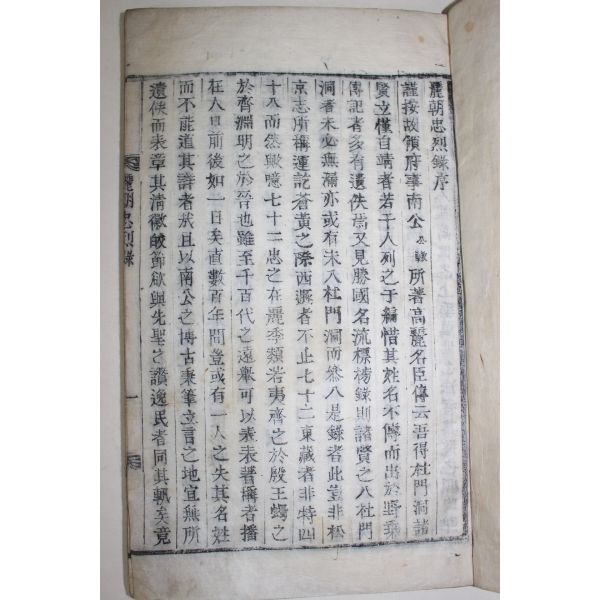 麗朝忠烈錄序
謹按故領府事南公公轍所著高麗名臣傳云吾得杜門洞諸
賢立慬自靖者若干人列之于編惜其姓名不傳而出於野乘
傳記者多有遺佚焉又見勝國名流標榜錄則諸賢之入杜門
洞者未必無漏亦或有未入杜門洞而叅入是錄者此豈非松
京志所稱運訖蒼黃之際西遯者不止七十二東藏者非特四
十八而然歟噫七十二忠之在麗季類若夷齊之於殷王蠋之
於齊淵明之於晉也雖至千百代之遠擧可以表表著稱者播
在人目前後如一日矣直數百年間豈或有一人之失其名姓
而不能道其詳者哉且以南公之博古秉筆立言之地宜無所
遺佚而表章其淸徽皎節欲與先聖之讚逸民者同其軌矣竟
麗朝忠烈錄
一